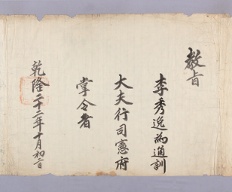 教旨
李秀逸為通訓
大夫行司憲府
掌令者
乾隆二十三年十月初日